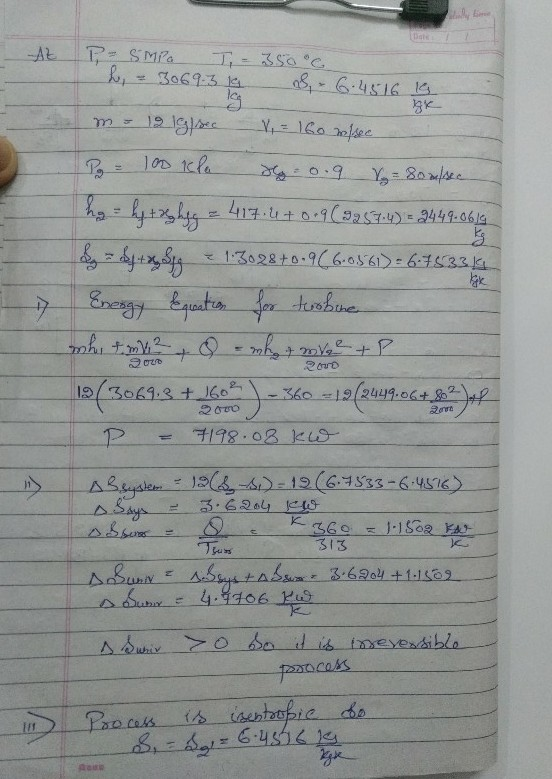 At P₁ = 5MPa T₁ = 350°C
h₁ = 3069.3 kJ/kg s₁ = 6.4516 kJ/kgK
m = 12 kg/sec V₁ = 160 m/sec
P₂ = 100 kPa x₂ = 0.9 V₂ = 80 m/sec
h₂ = hf + x₂hfg = 417.4 + 0.9(2257.4) = 2449.06 kJ/kg
s₂ = sf + x₂sfg = 1.3028 + 0.9(6.0561) = 6.7533 kJ/kgK
i) Energy Equation for turbine
mh₁ + mV₁²/2000 + Q = mh₂ + mV₂²/2000 + P
12(3069.3 + 160²/2000) - 360 = 12(2449.06 + 80²/2000) + P
P = 7198.08 kW
ii) ΔSsystem = 12(s₂ - s₁) = 12(6.7533 - 6.4516)
ΔSsys = 3.6204 kW/K
ΔSsurr = Q/Tsurr = 360/313 = 1.1502 kW/K
ΔSuniv = ΔSsys + ΔSsurr = 3.6204 + 1.1502
ΔSuniv = 4.7706 kW/K
ΔSuniv > 0 so it is irreversible
process
iii) Process is isentropic so
s₁ = s₂' = 6.4516 kJ/kgK